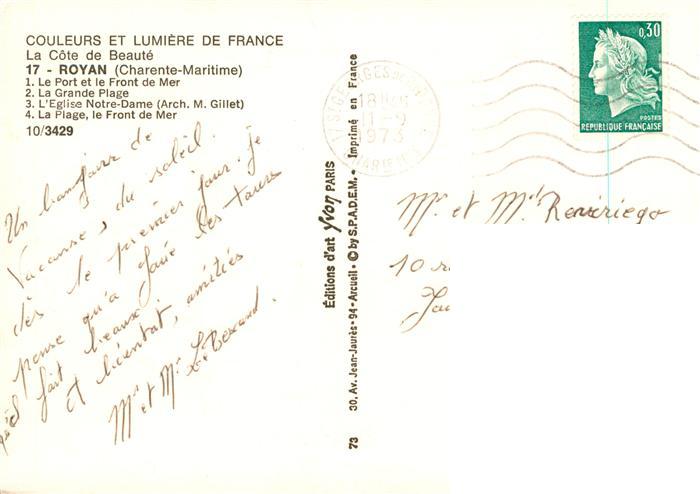 COULEURS ET LUMIÈRE DE FRANCE
La Côte de Beauté
17 - ROYAN (Charente-Maritime)
1. Le Port et le Front de Mer
2. La Grande Plage
3. L'Eglise Notre-Dame (Arch. M. Gillet)
4. La Plage, le Front de Mer
10/3429
Un bonjour de
Vacance, du soleil.
dès le premier jour. je
pense qu'a
fait beaux.
et bientot, amitiés
Mr et Me
Editions d'art Yvon PARIS
30, Av. Jean-Jaurès - 94 - Arcueil • © by S.P.A.D.E.M. • Imprimé en France
73
18H
1973
0,30
POSTES
REPUBLIQUE FRANÇAISE
Mr et Md
10